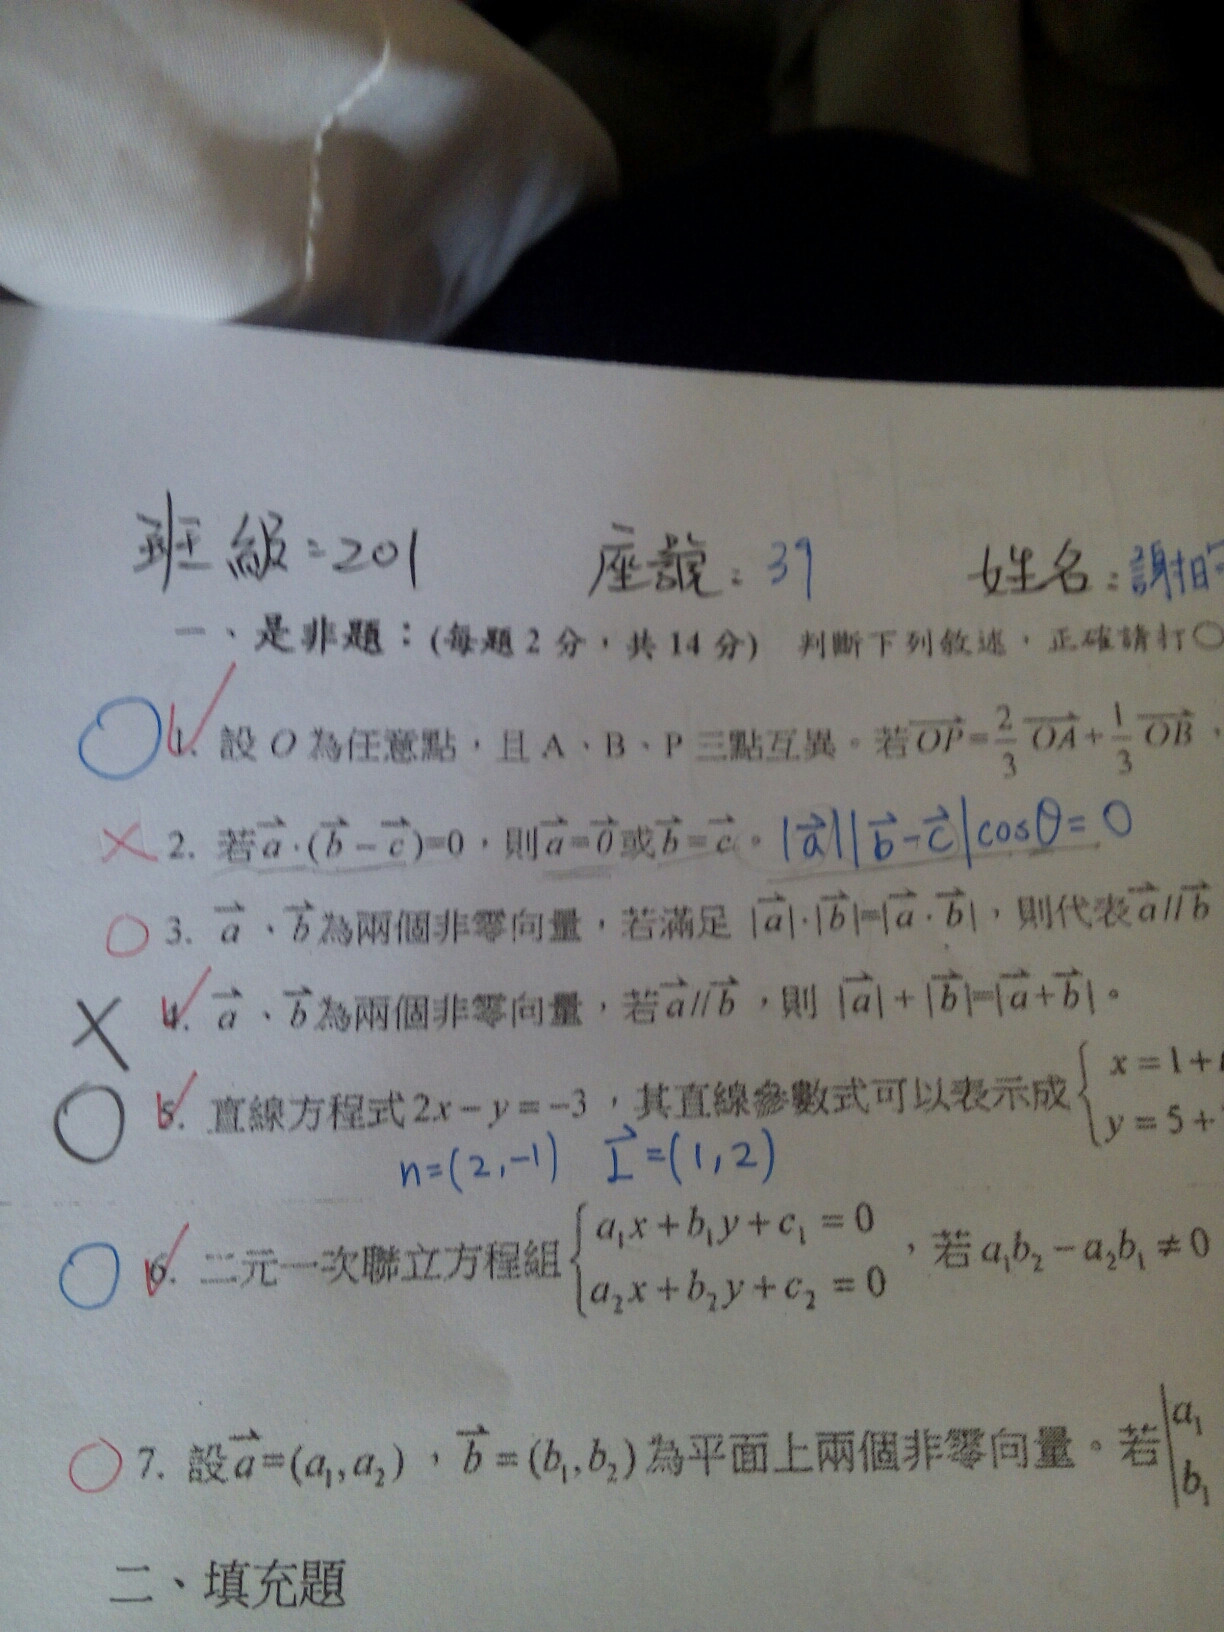 班級:201 座號:39 姓名:謝
一、是非題：(每題2分，共14分) 判斷下列敘述，正確請打○
○ ✓ 1. 設 O 為任意點，且 A、B、P 三點互異。若 $\overrightarrow{OP}=\frac{2}{3}\overrightarrow{OA}+\frac{1}{3}\overrightarrow{OB}$，
× 2. 若 $\vec{a}\cdot(\vec{b}-\vec{c})=0$，則 $\vec{a}=\vec{0}$ 或 $\vec{b}=\vec{c}$。 $|\vec{a}||\vec{b}-\vec{c}|\cos\theta=0$
○ 3. $\vec{a}$、$\vec{b}$ 為兩個非零向量，若滿足 $|\vec{a}|\cdot|\vec{b}|=|\vec{a}\cdot\vec{b}|$，則代表 $\vec{a}//\vec{b}$
× ✓ 4. $\vec{a}$、$\vec{b}$ 為兩個非零向量，若 $\vec{a}//\vec{b}$，則 $|\vec{a}|+|\vec{b}|=|\vec{a}+\vec{b}|$。
○ ✓ 5. 直線方程式 2x－y＝－3，其直線參數式可以表示成 { x＝1+
y＝5+
n=(2,-1) $\vec{L}$=(1,2)
○ ✓ 6. 二元一次聯立方程組 { a₁x+b₁y+c₁=0
a₂x+b₂y+c₂=0 ，若 a₁b₂－a₂b₁≠0
○ 7. 設 $\vec{a}$=(a₁,a₂)，$\vec{b}$=(b₁,b₂) 為平面上兩個非零向量。若 | a₁
b₁
二、填充題